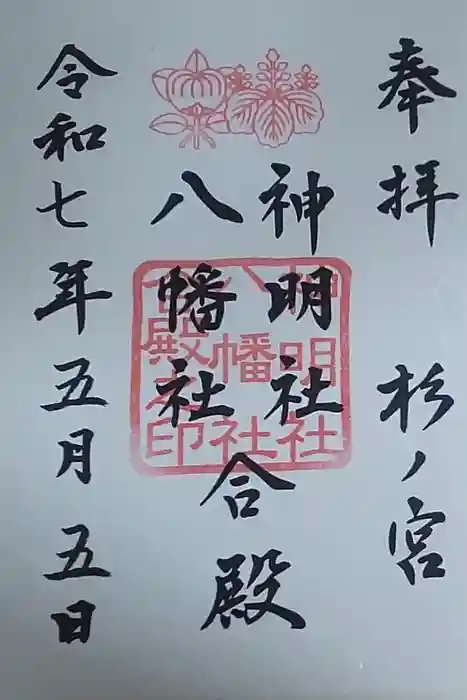 奉拝 杉ノ宮
神明社
八幡社
合殿
神明社
八幡社
合殿之印
令和七年五月五日